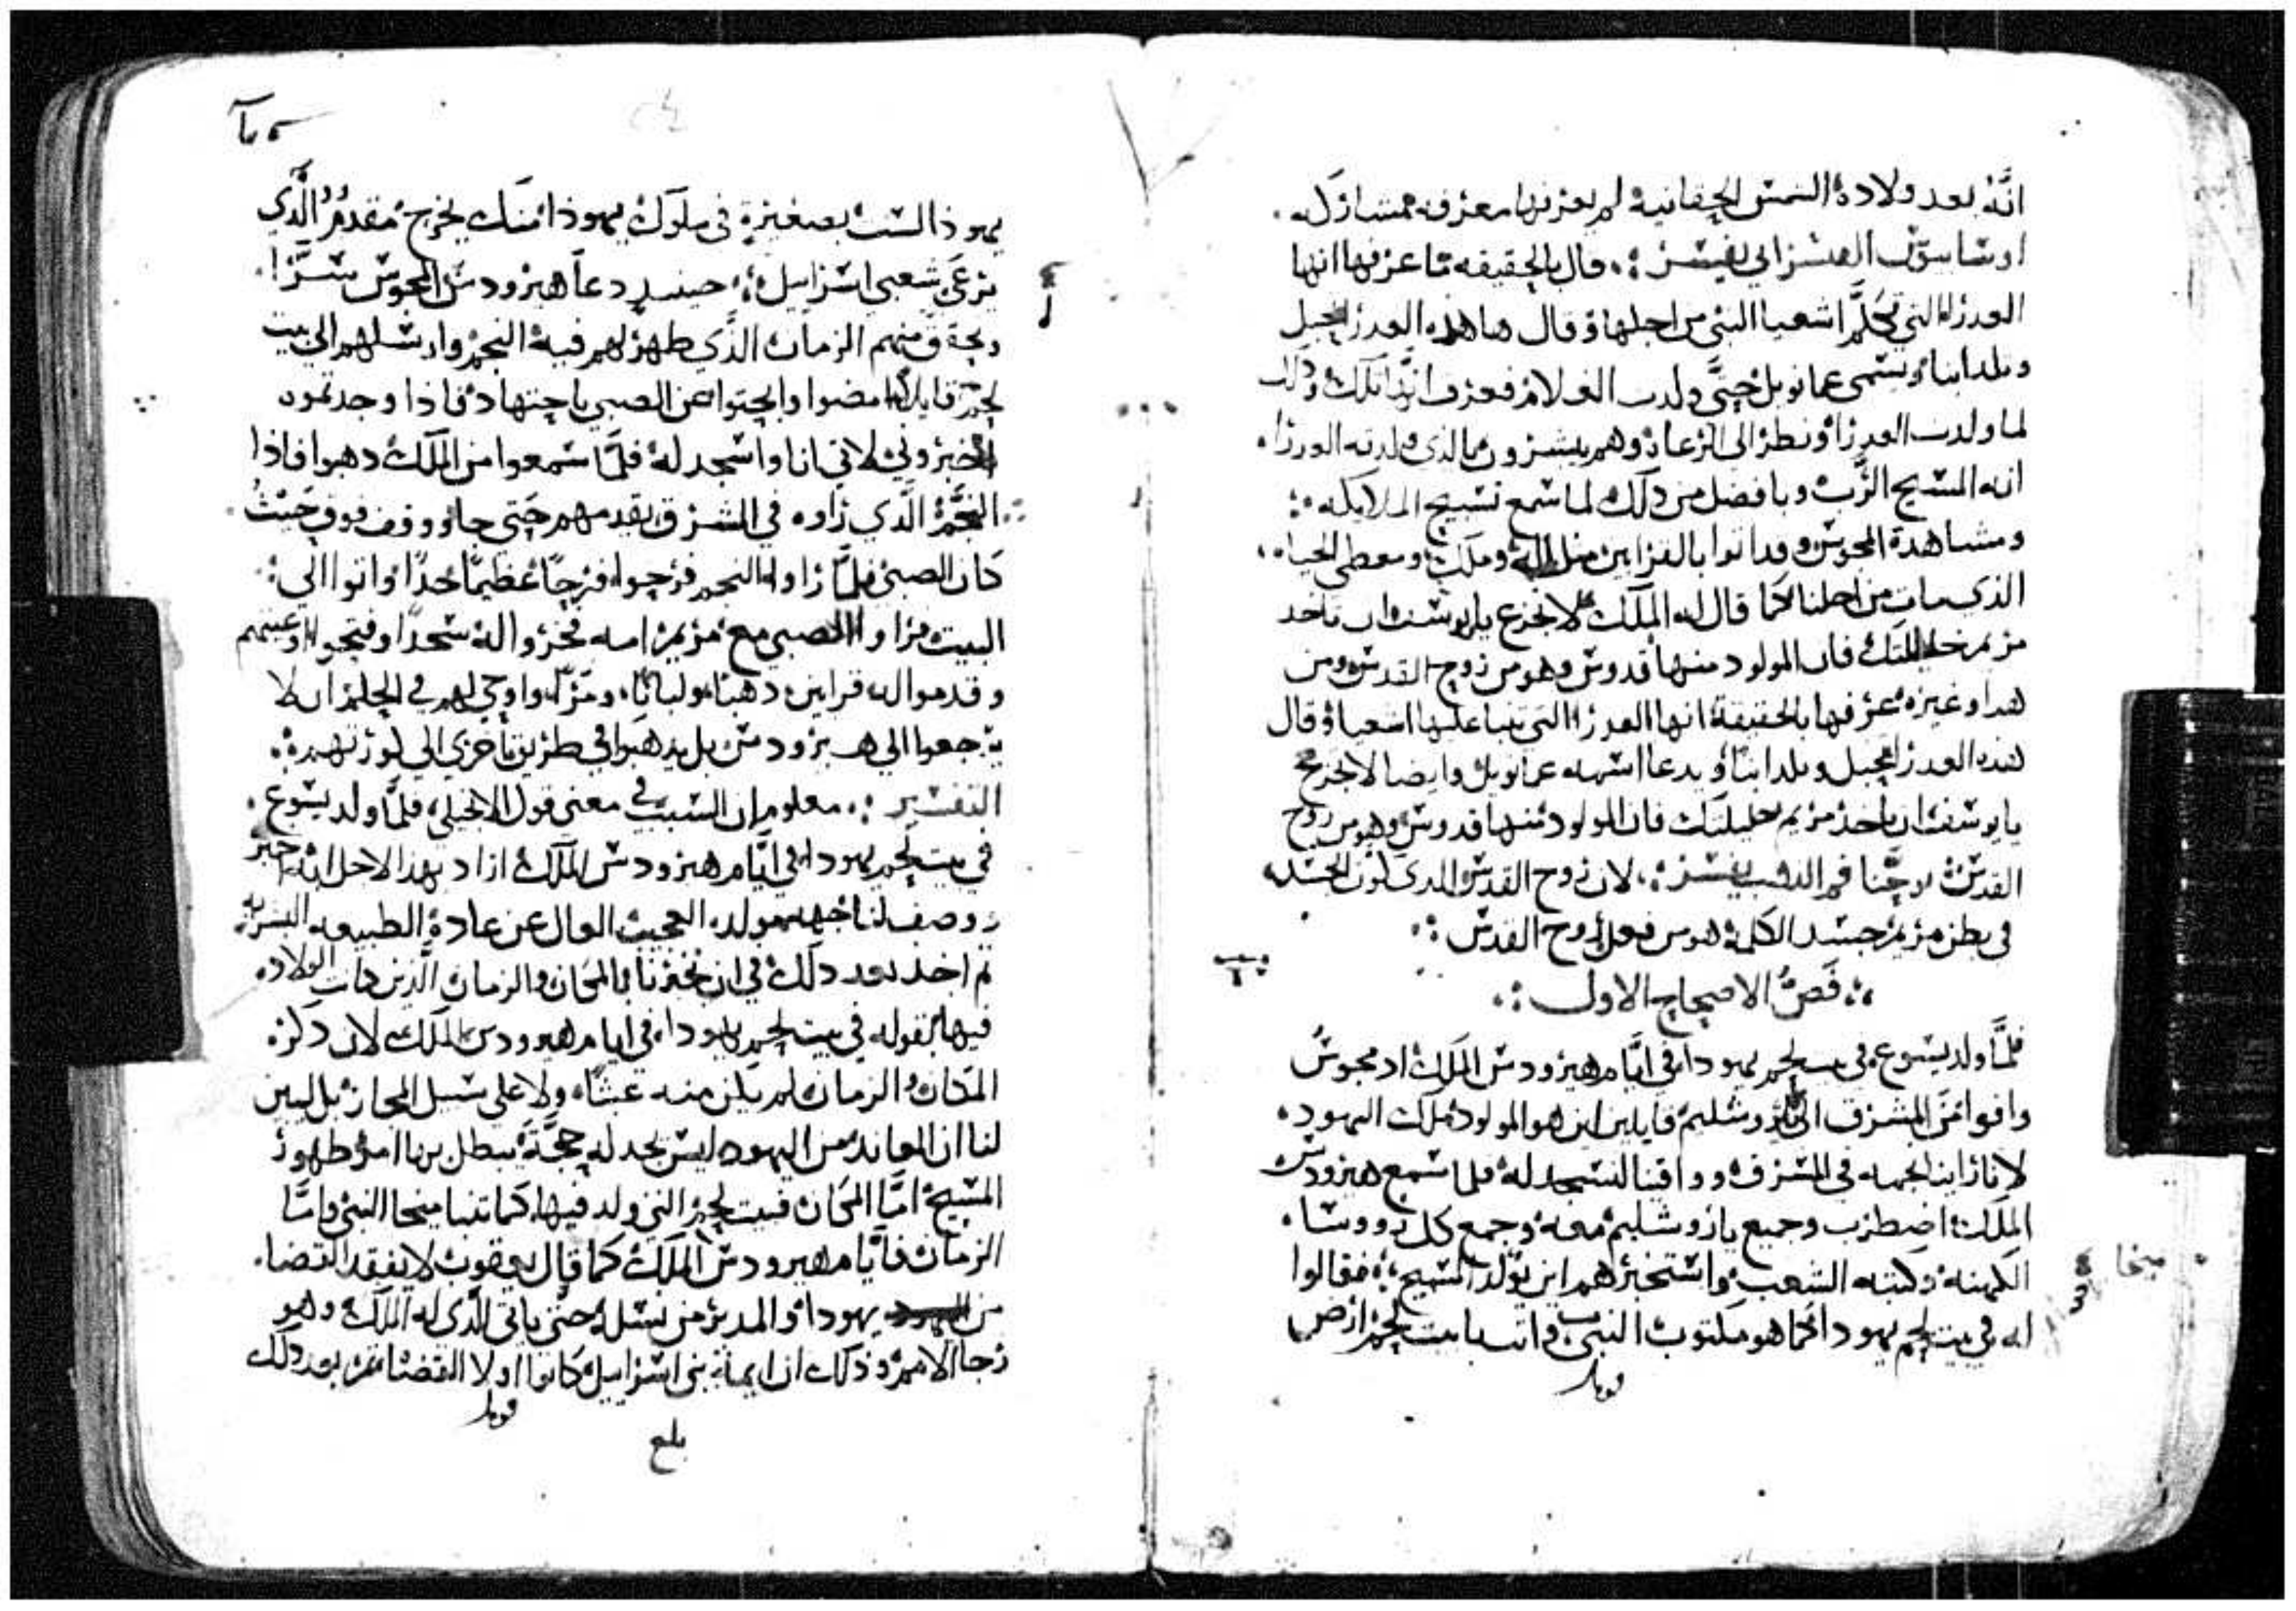 انه بعد ولادة الشمس الحقانيه لم يعرفها معرفه مشاركه
قال بالحقيقه ما عرفها انها
العدرا التي تكلم اشعيا النبي من اجلها وقال ها هده العدرا تحبل
وتلد ابنا ويسمى عمانويل حتى ولدت الغلام فعرف
لما ولدت العدرا ونظر الى الرعاه وهم يبشرون بالذي ولدته العدرا
انه المسيح الرب وبافضل من دلك لما سمع تسبيح الملايكه
ومشاهدة المجوس وقد اتوا بالقرابين مثل اله وملك ومعطي الحياه
الذي مات من اجلنا كما قال له الملك لا تجزع يا يوسف ان تاخد
مريم خليلتك فان المولود منها قدوس وهو من روح القدس ومن
هدا وغيره عرفها بالحقيقة انها العدرا التي تنبا عليها اشعيا وقال
هده العدرا تحبل وتلد ابنا ويدعا اسمه عمانويل وايضا لا تجزع
يا يوسف ان تاخذ مريم خليلتك فان المولود منها قدوس وهو من روح
القدس يوحنا فم الدهب يفسر لان روح القدس الدي كون الجسد
في بطن مريم جسد الكلمة هو من فعل روح القدس
فص الاصحاح الاول
فلما ولد يسوع في بيت لحم يهودا في ايام هيرودس الملك اد مجوس
وافوا من المشرق الى يروشليم قايلين اين هو المولود ملك اليهود
لانا راينا نجمه في المشرق ووافينا لنسجد له فلما سمع هيرودس
الملك اضطرب وجميع ياروشليم معه وجمع كل رووسا
الكهنه وكتبه الشعب واستخبرهم اين يولد المسيح فقالوا
له في بيت لحم يهودا كما هو مكتوب في النبي وانت يا بيت لحم ارض
ميخا
يهوذا لست بصغيرة في ملوك يهوذا منك يخرج مقدم الذي
يرعى شعبي اسراييل حينيد دعا هيرودس المجوس سرا
وتحقق منهم الزمان الذي ظهر لهم فيه النجم وارسلهم الى بيت
لحم قايلا امضوا وابحتوا عن الصبي باجتهاد فاذا وجدتموه
اخبروني لاتي انا واسجد له فلما سمعوا من الملك دهبوا فاذا
النجم الذي راوه في المشرق يقدمهم حتى جا ووقف فوق حيث
كان الصبي فلما راوا النجم فرحوا فرحا عظيما جدا واتوا الى
البيت فراوا الصبي مع مريم امه فخروا له سجدا وفتحوا اوعيتهم
وقدموا له قرابين دهبا ولبانا ومرا واوحي لهم في الحلم ان لا
يرجعوا الى هيرودس بل يدهبوا في طريق اخرى الى كورتهم
التفسير معلوم ان السبب في معنى قول الانجيلي فلما ولد يسوع
في بيت لحم يهودا في ايام هيرودس الملك اراد بهذا الاجل انه حين
وصف لنا جهه مولده العجيب العال عن عادة الطبيعه البشريه
تم اخد بعد دلك في ان يخبرنا بالمكان والزمان الذين كانت الولاده
فيها بقوله في بيت لحم يهودا في ايام هيرودس الملك لان دكر
المكان والزمان لم يكن منه عبثا ولا على سبيل المجاز بل ليبين
لنا ان المعاند من اليهود ليس يجد له حجة يبطل بها امر ظهور
المسيح اما المكان فبيت لحم التي ولد فيها كما تنبا ميخا النبي واما
الزمان فايام هيرودس الملك كما قال يعقوب لا يفقد القضا
من يهودا والمدبر من نسله حتى ياتي الذي له الملك وهو
رجا الامم وذلك ان ايمة بني اسراييل كانوا اولا القضاة ثم بعد دلك
بلغ